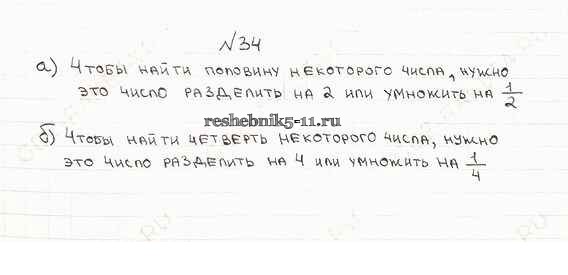 №34
а) Чтобы найти половину некоторого числа, нужно
это число разделить на 2 или умножить на 1/2
reshebnik5-11.ru
б) Чтобы найти четверть некоторого числа, нужно
это число разделить на 4 или умножить на 1/4